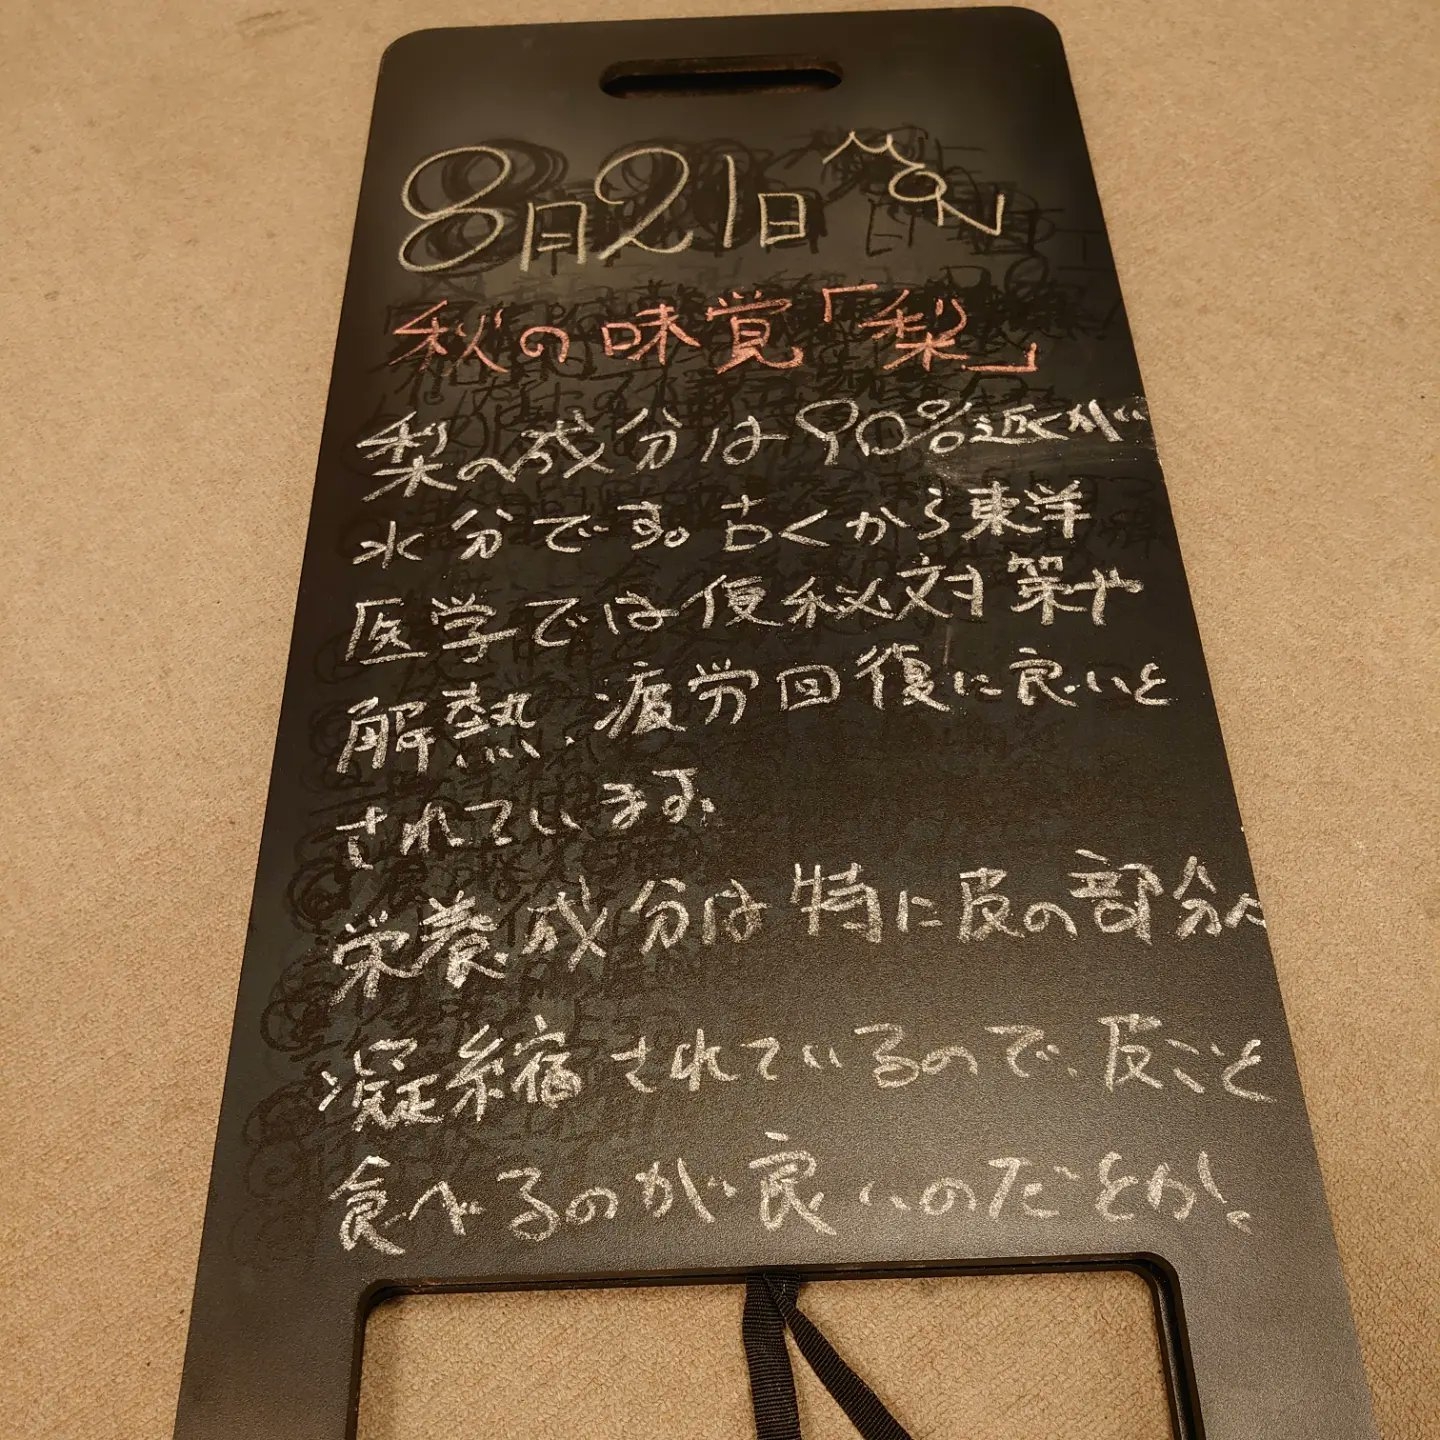 8月21日 MON
秋の味覚「梨」
梨の成分は90%近くが
水分です。古くから東洋
医学では便秘対策や
解熱、疲労回復に良いと
されています。
栄養成分は特に皮の部分に
凝縮されているので、皮ごと
食べるのが良いのだとか。